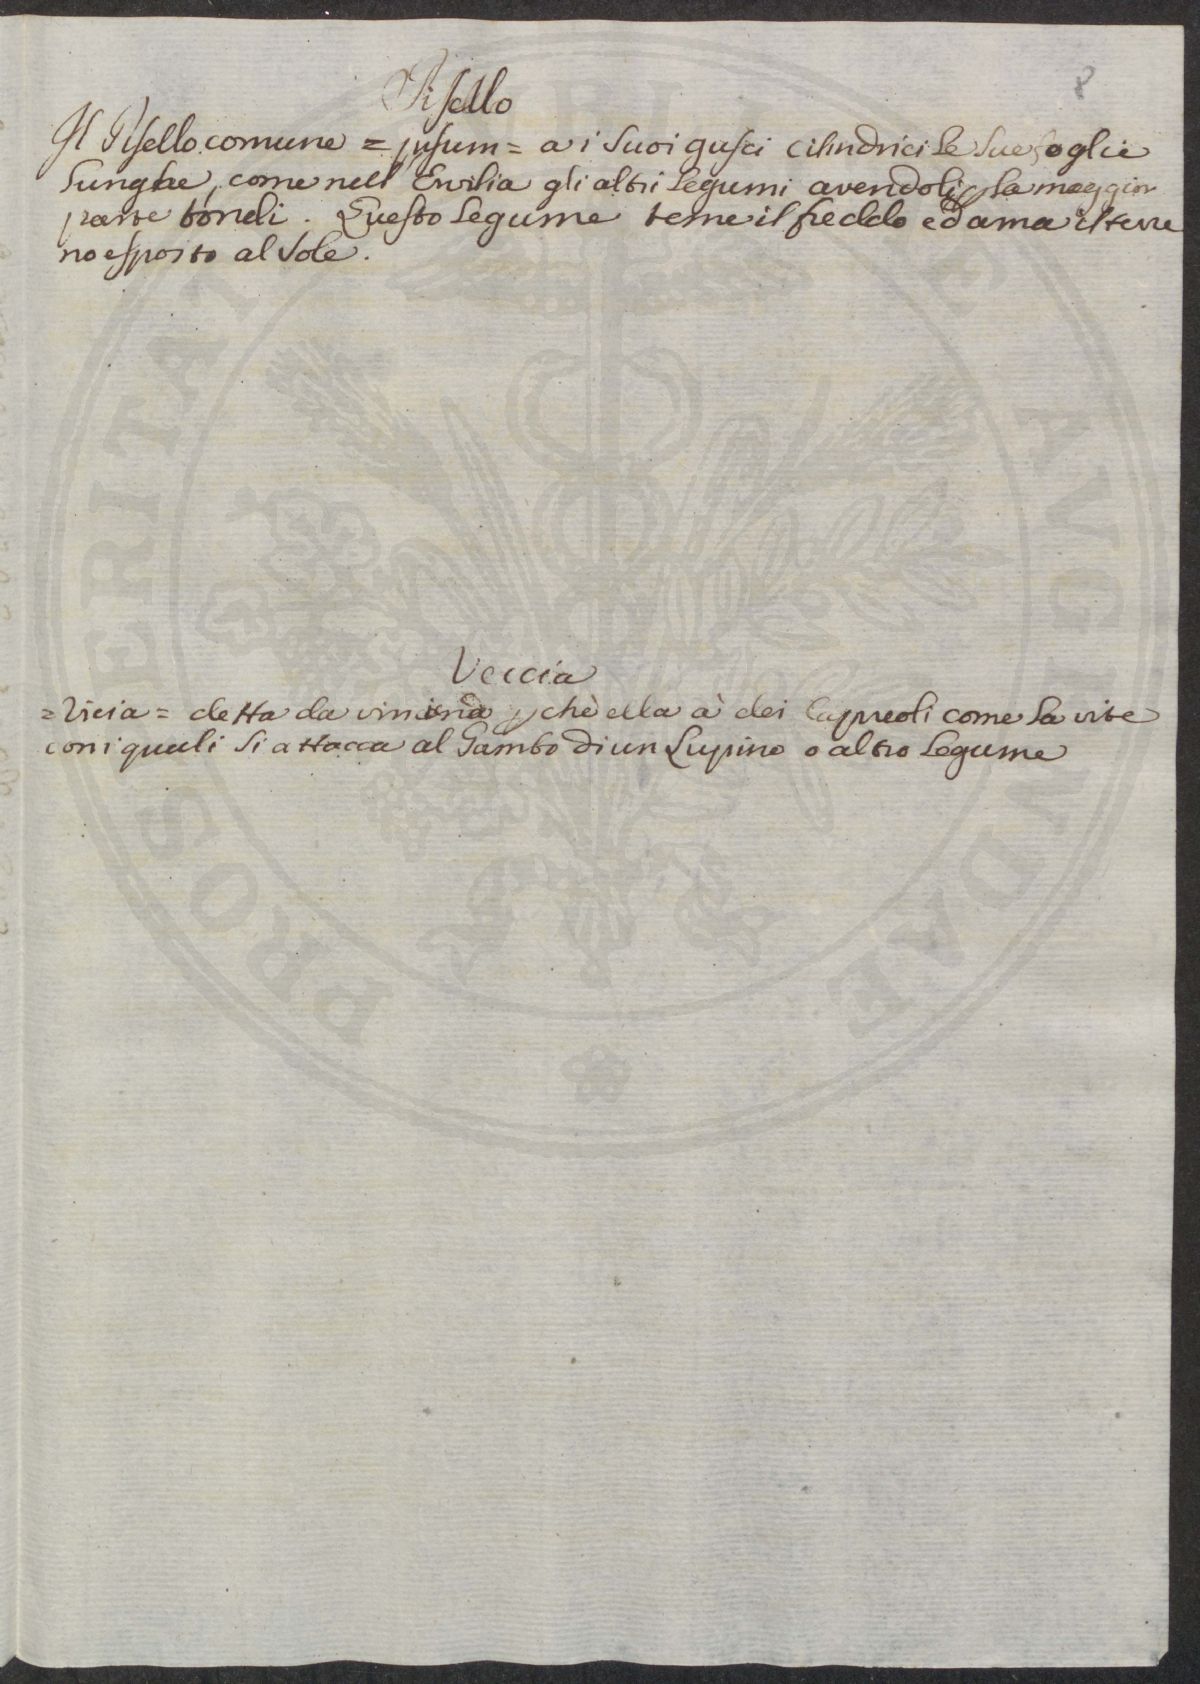 8
Pisello
Il Pisello comune = pisum = a i suoi gusci cilindrici le sue foglie
lunghe, come nell Ervilia gli altri legumi avendoli p la maggior
parte tondi. Questo legume teme il freddo ed ama il terre
no esposto al sole.
Veccia
= Vicia = detta da p chè ella à dei capreoli come la vite
con i quali si attacca al Gambo di un Lupino o altro legume
PROSPERITATI AVGENDAE